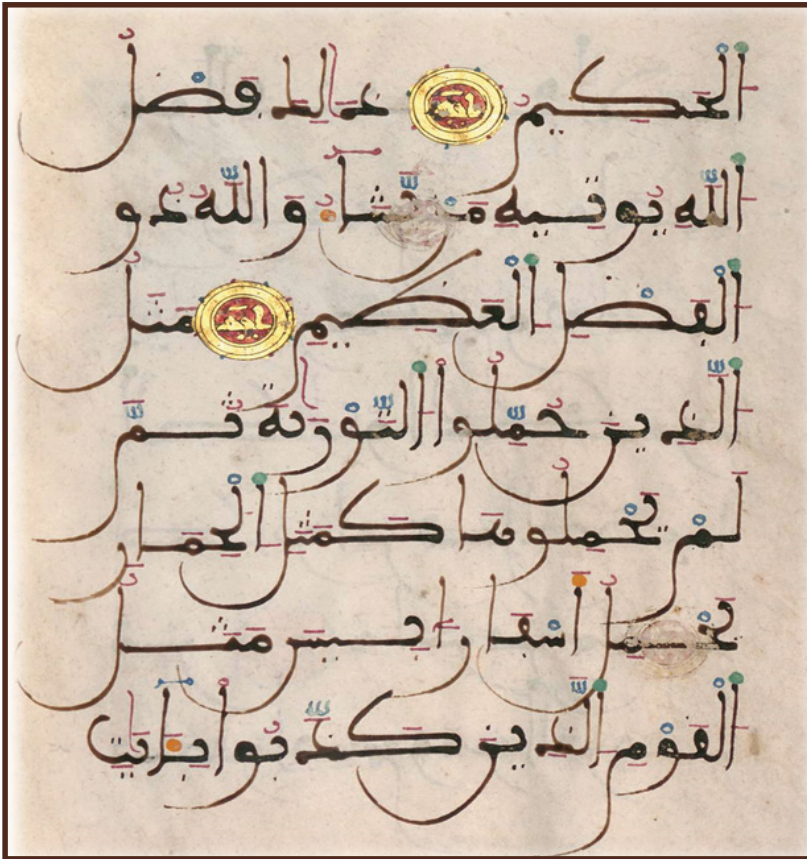 اَ۬لْحَكِيمُ ذَٰلِكَ فَضْلُ
اُ۬للَّهِ يُوتِيهِ مَنْ يَّشَآءُ وَاللَّهُ ذُو
اُ۬لْفَضْلِ اِ۬لْعَظِيمِ مَثَلُ
اُ۬لَّذِينَ حُمِّلُوا اُ۬لتَّوْرَىٰةَ ثُمَّ
لَمْ يَحْمِلُوهَا كَمَثَلِ اِ۬لْحِمَارِ
يَحْمِلُ أَسْفَارًا بِيسَ مَثَلُ
اُ۬لْقَوْمِ اِ۬لَّذِينَ كَذَّبُوا بِـَٔايَٰتِ